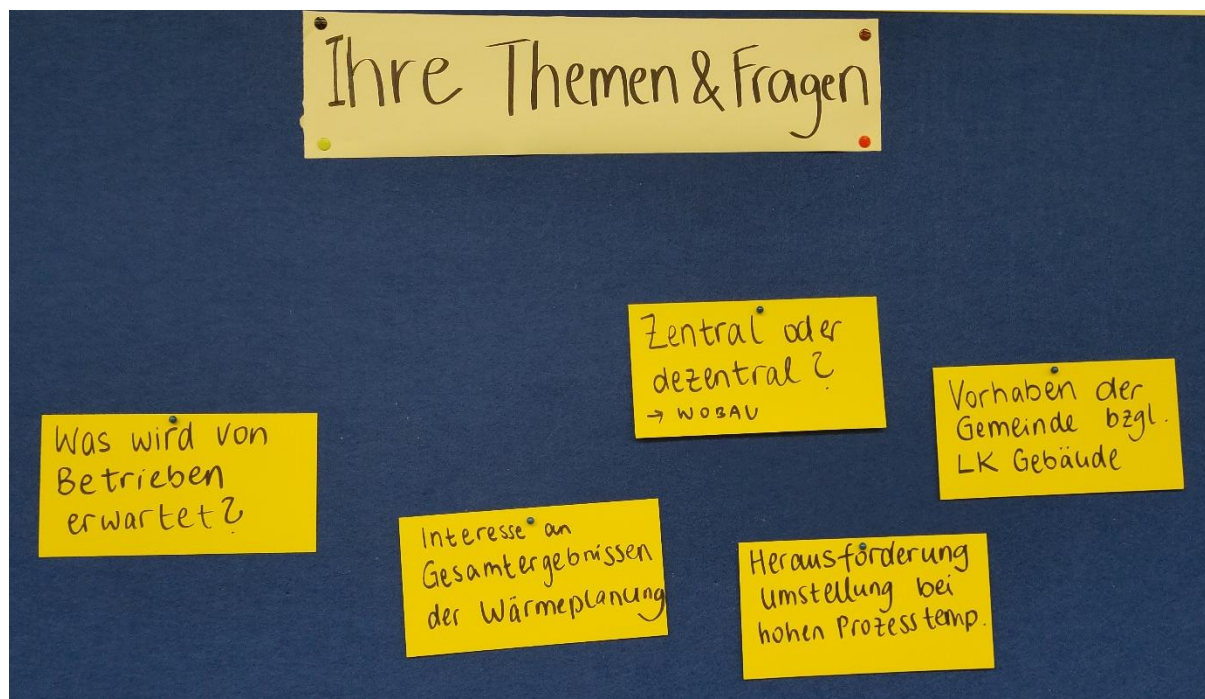 Ihre Themen & Fragen
Was wird von
Betrieben
erwartet?
Interesse an
Gesamtergebnissen
der Wärmeplanung
Zentral oder
dezentral?
→ WOBAU
Herausforderung
Umstellung bei
hohen Prozesstemp.
Vorhaben der
Gemeinde bzgl.
LK Gebäude